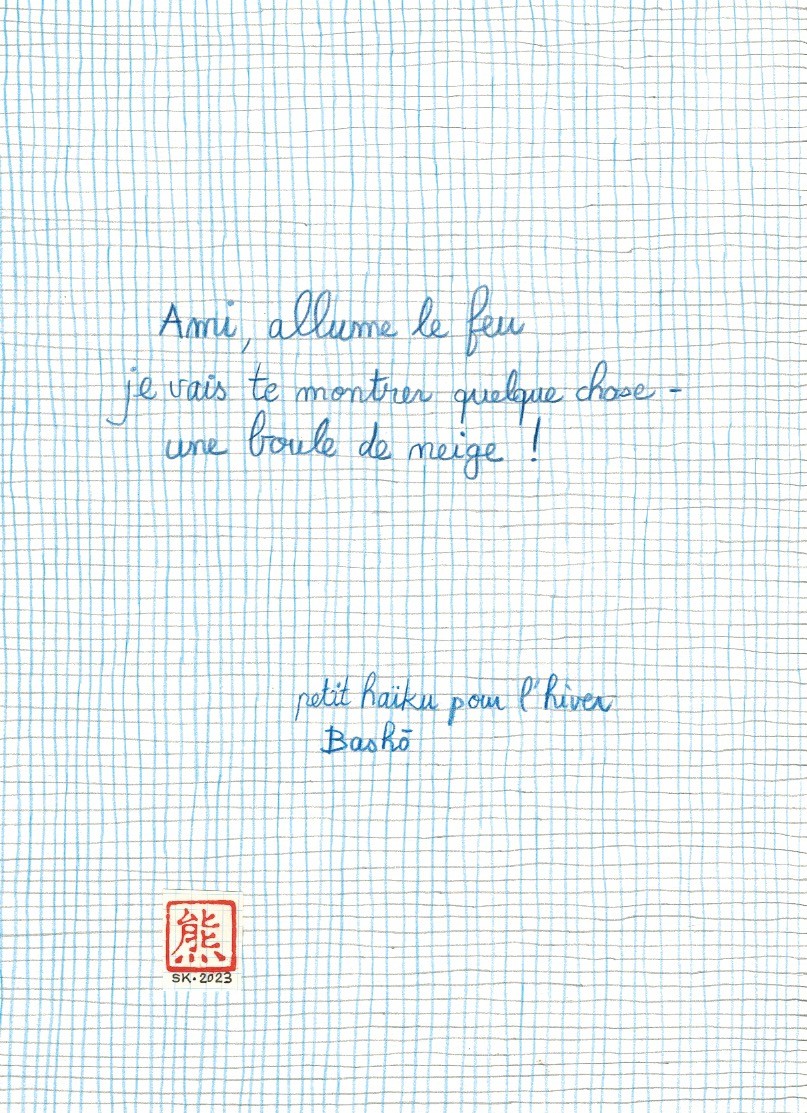 Ami, allume le feu
je vais te montrer quelque chose -
une boule de neige !
petit haïku pour l'hiver
Bashō
熊
SK·2023